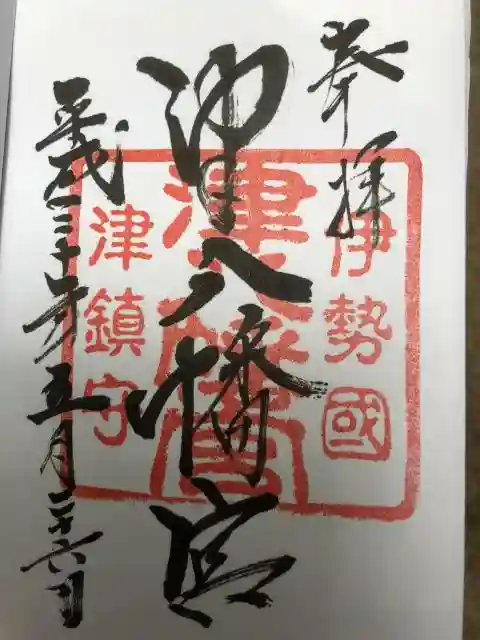 奉拝
津八幡宮
平成三十年五月二十六日
伊勢國
津八幡宮
津鎮守